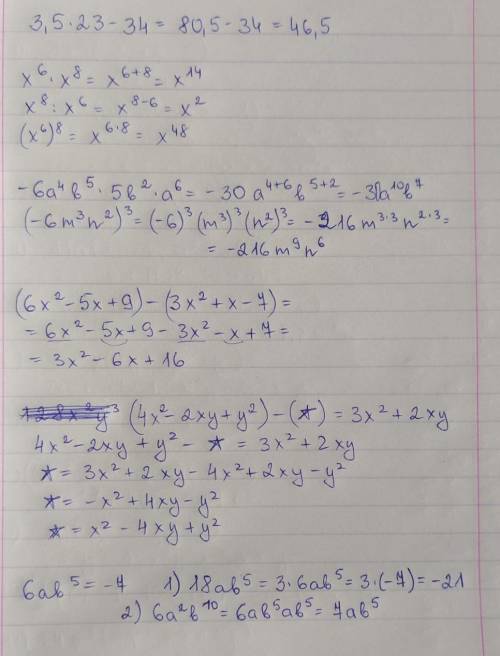 3,5·23-34 = 80,5-34 = 46,5
x⁶·x⁸ = x⁶⁺⁸ = x¹⁴
x⁸:x⁶ = x⁸⁻⁶ = x²
(x⁶)⁸ = x⁶˙⁸ = x⁴⁸
-6a⁴b⁵·5b²·a⁶ = -30a⁴⁺⁶b⁵⁺² = -30a¹⁰b⁷
(-6m³n²)³ = (-6)³(m³)³(n²)³ = -216m³˙³n²˙³ =
= -216m⁹n⁶
(6x²-5x+9)-(3x²+x-7) =
= 6x²-5x+9-3x²-x+7 =
= 3x²-6x+16
(4x²-2xy+y²)-(*) = 3x²+2xy
4x²-2xy+y²-* = 3x²+2xy
* = 3x²+2xy-4x²+2xy-y²
* = -x²+4xy-y²
* = x²-4xy+y²
6ab⁵ = -7 1) 18ab⁵ = 3·6ab⁵ = 3·(-7) = -21
2) 6a²b¹⁰ = 6ab⁵ab⁵ = 7ab⁵